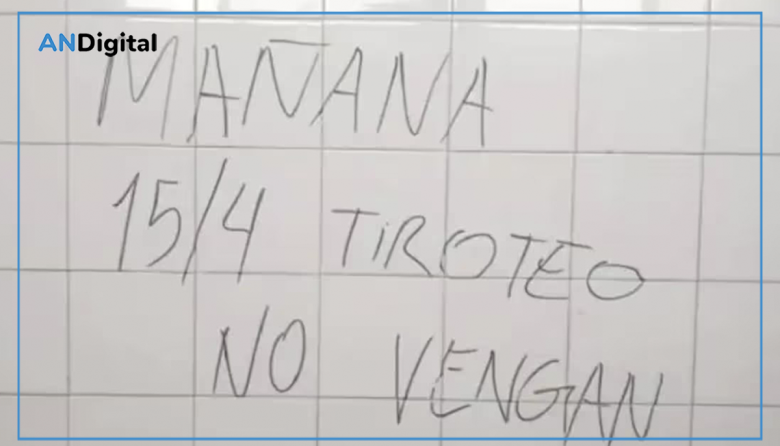 ANDigital
MAÑANA
15/4 TiROTEO
NO VENGAN